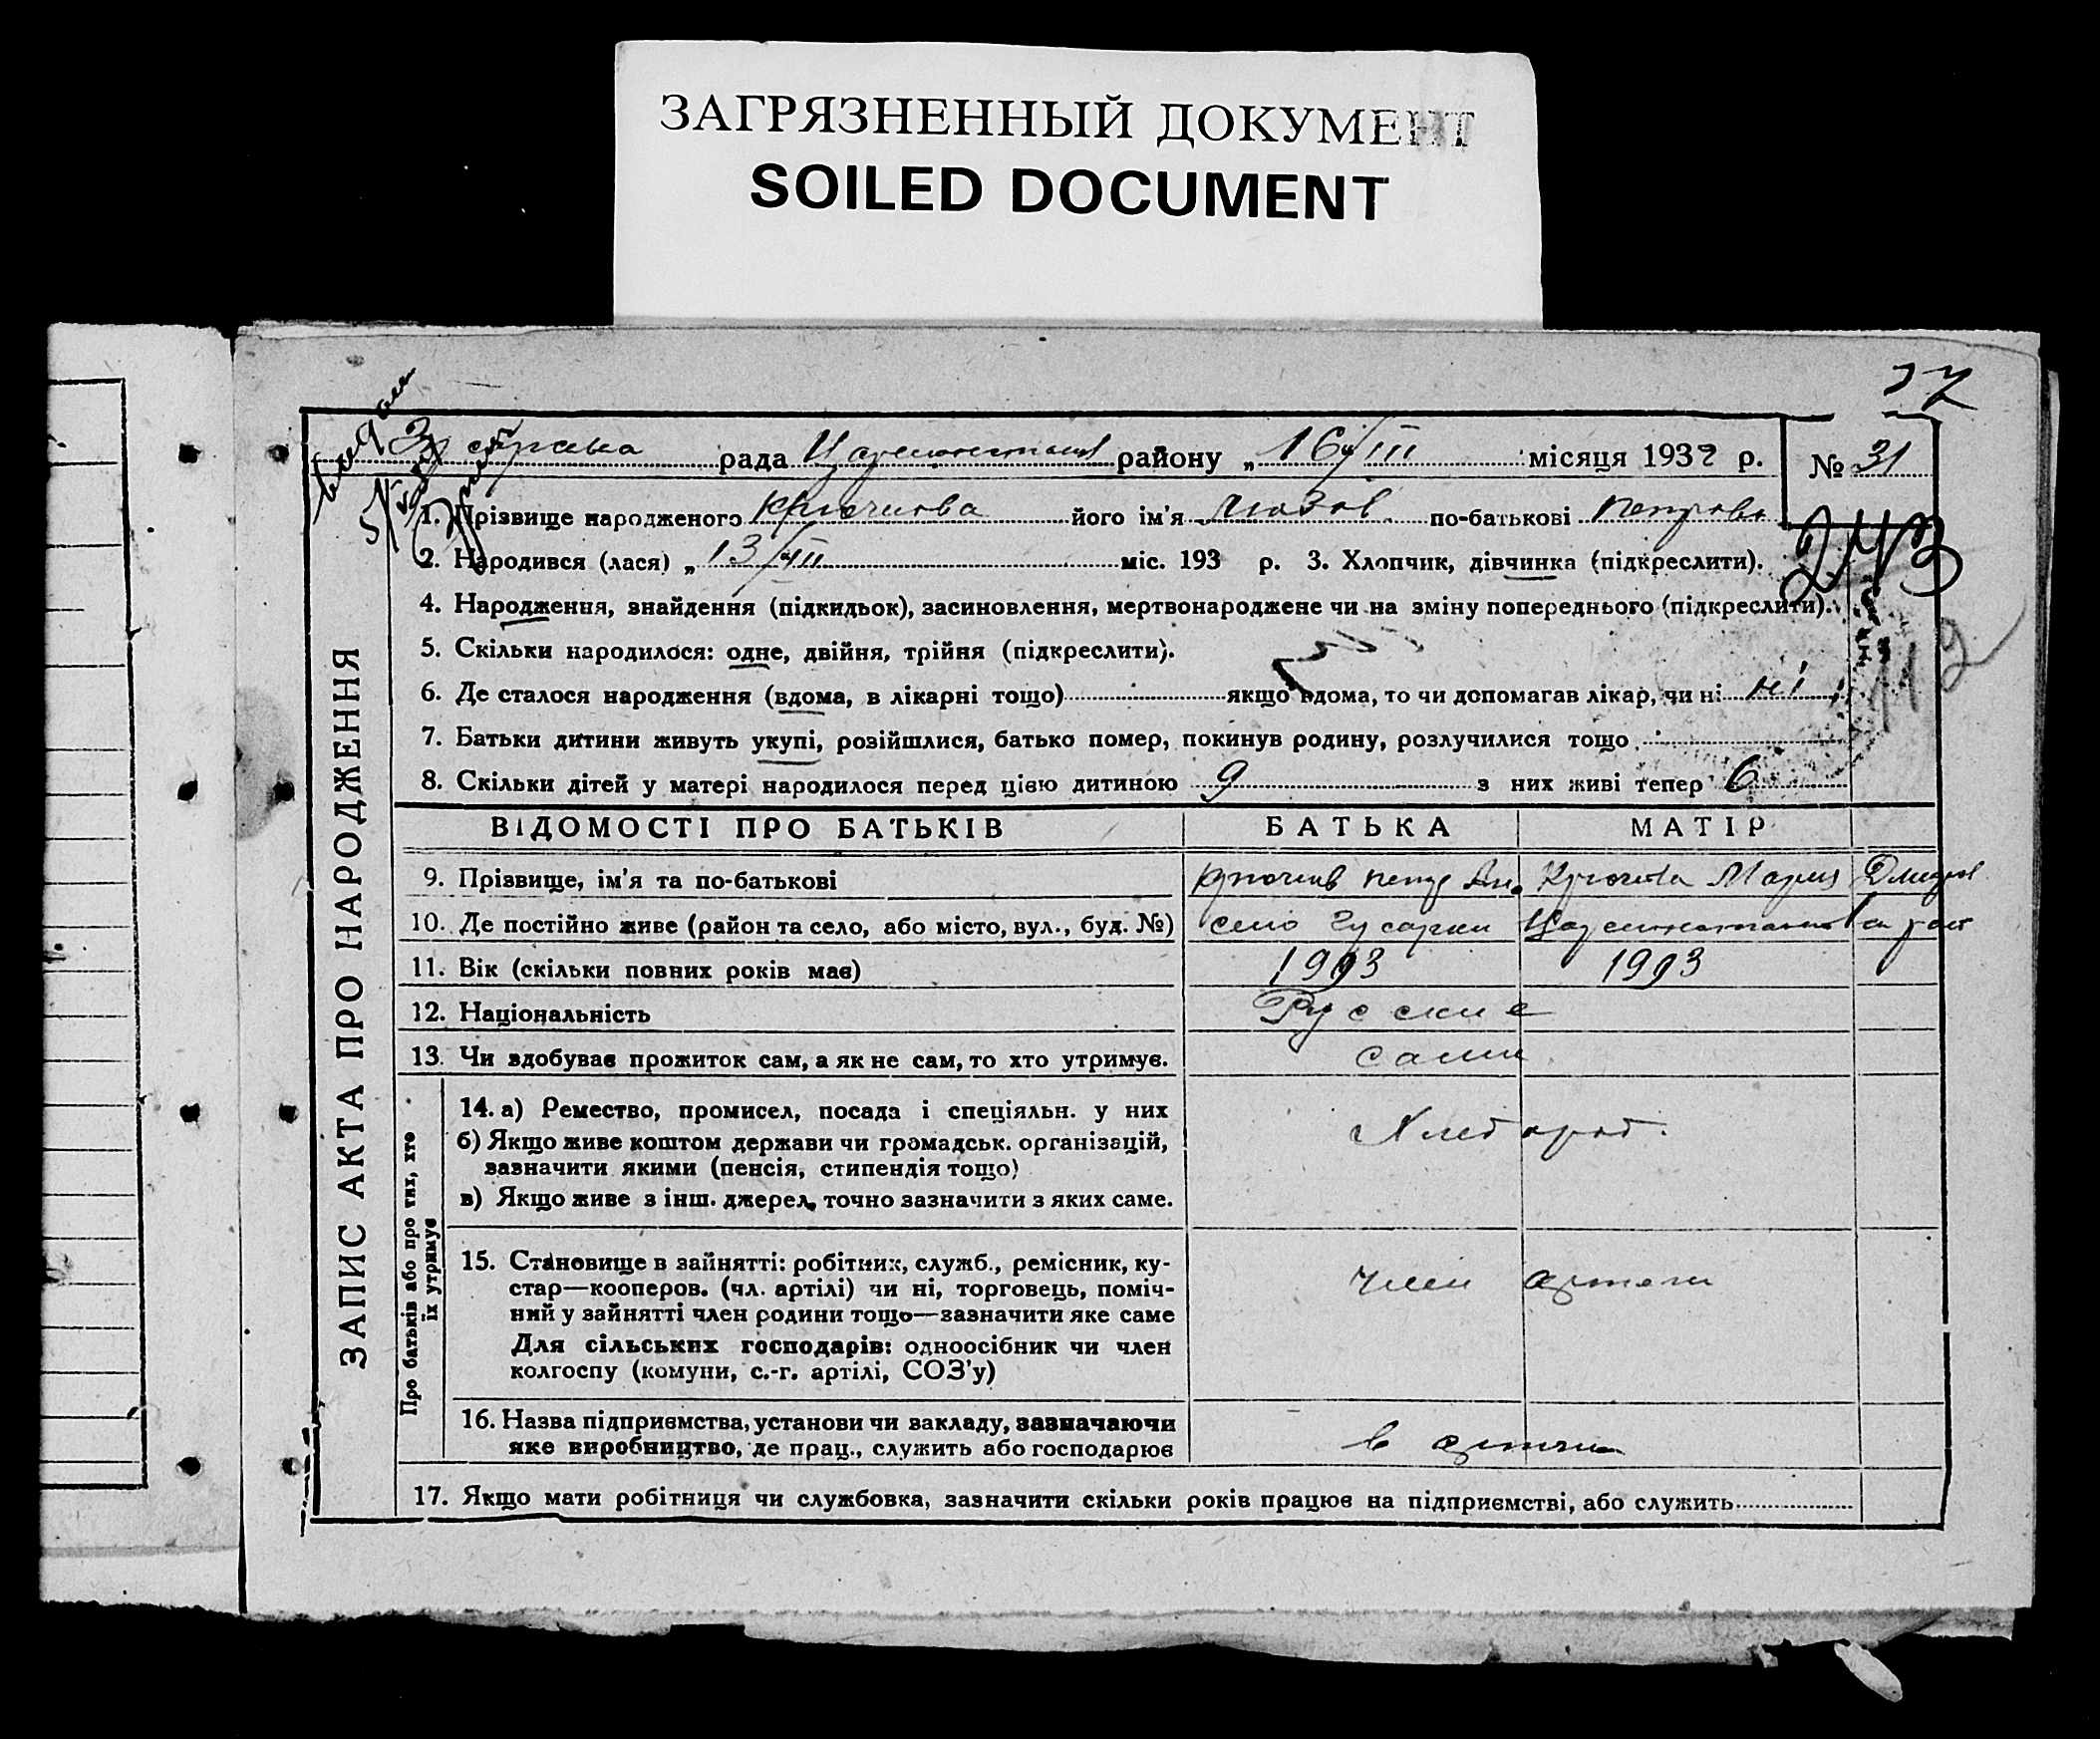 ЗАГРЯЗНЕННЫЙ ДОКУМЕНТ
SOILED DOCUMENT
рада району „ 16/III місяця 1932 р. № 31
1. Прізвище народженого Крючкова його ім'я по-батькові Петровн
243
2. Народився (лася) „ 13/III міс. 193 р. 3. Хлопчик, дівчинка (підкреслити).
4. Народження, знайдення (підкидьок), засиновлення, мертвонароджене чи на зміну попереднього (підкреслити).
5. Скільки народилося: одне, двійня, трійня (підкреслити).
6. Де сталося народження (вдома, в лікарні тощо) якщо вдома, то чи допомагав лікар, чи ні ні
7. Батьки дитини живуть укупі, розійшлися, батько помер, покинув родину, розлучилися тощо
8. Скільки дітей у матері народилося перед цією дитиною 9 з них живі тепер 6
ЗАПИС АКТА ПРО НАРОДЖЕННЯ
ВІДОМОСТІ ПРО БАТЬКІВ БАТЬКА МАТІР
9. Прізвище, ім'я та по-батькові Крючков Петр Крючкова Мария
10. Де постійно живе (район та село, або місто, вул., буд. №) село Гусарки
11. Вік (скільки повних років має) 1993 1993
12. Національність Русские
13. Чи здобуває прожиток сам, а як не сам, то хто утримує. сами
Про батьків або про тих, хто їх утримує
14. а) Ремество, промисел, посада і спеціяльн. у них
б) Якщо живе коштом держави чи громадськ. організацій,
зазначити якими (пенсія, стипендія тощо)
в) Якщо живе з інш. джерел, точно зазначити з яких саме.
Хлебороб.
15. Становище в зайнятті: робітник, служб., ремісник, ку-
стар—кооперов. (чл. артілі) чи ні, торговець, поміч-
ний у зайнятті член родини тощо—зазначити яке саме
Для сільських господарів: одноосібник чи член
колгоспу (комуни, с.-г. артілі, СОЗ'у)
член артели
16. Назва підприємства, установи чи закладу, зазначаючи
яке виробництво, де прац., служить або господарює
в артели
17. Якщо мати робітниця чи службовка, зазначити скільки років працює на підприємстві, або служить